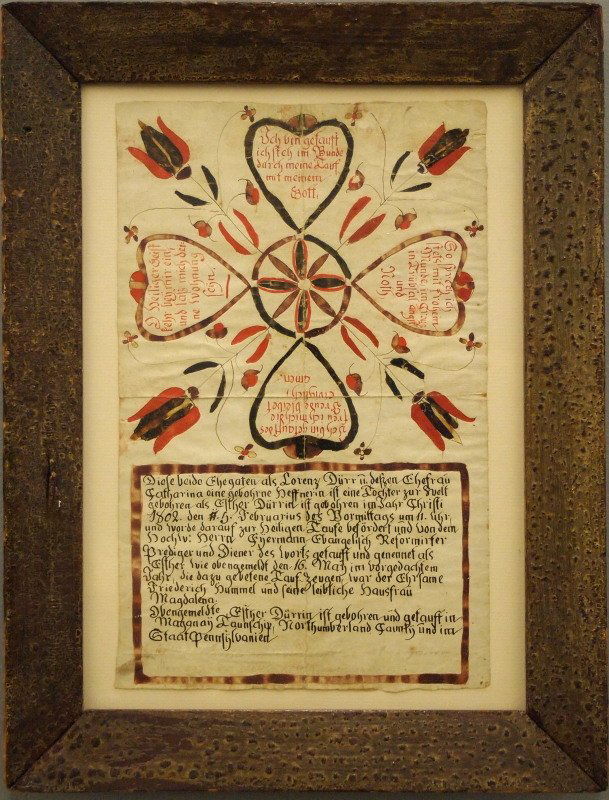 Ich bin getauft
ich steh im Bunde
durch meine Tauf
mit meinem
Gott.
O Heiliger Geist
kehr bey mir ein
und laß mich dei-
ne Wohnung
seyn.
So sprech ich
stets mit frohem
Munde im Creutz
in Trübsal angst
und
Noth
Ich bin getauft des
freu ich mich die
Freude bleibet
ewiglich
Amen.
Diese beide Ehegaten als Lorenz Dürr u. deßen Ehefrau
Catharina eine gebohrne Heffnerin ist eine Tochter zur Welt
gebohren als Esther Dürrin ist gebohren im Jahr Christi
1802. den Februarius des Vormittags um 11. Uhr,
und worde darauf zur Heiligen Taufe befördert und von dem
Hochw: Herrn Eyermann Evangelisch Reformirter
Prediger und Diener des Worts getauft und genennet als
Esther wie obengemeldt den 16. May im vorgedachtem
Jahr, die dazu gebetene Tauf Zeugen, war der Ehrsame
Friederich Hummel und seine leibliche Hausfrau
Magdalena.
Obengemeldte Esther Dürrin ist gebohren und getauft in
Mahanay Taunschip, Northumberland Caunty und im
Staat Pennsylvanien